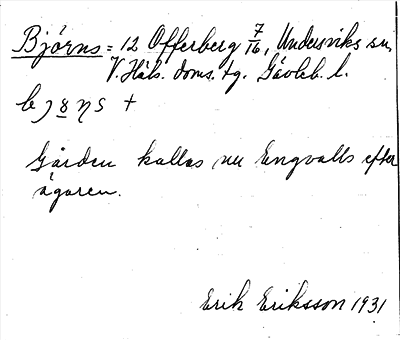 Björns = 12 Offerberg 7/16, Undersviks sn,
V. Häls. doms. tg. Gävleb. l.
Gården kallas nu Engvalls efter
ägaren.
Erik Eriksson 1931